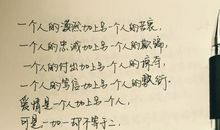 一个人的凛然加上另一个人的苦衷，
一个人的忠诚加上另一个人的欺骗，
一个人的付出加上另一个人的掠夺，
一个人的笃信加上另一个人的敷衍。
爱情是一个人加上另一个人，
可是一加一却不等于二，